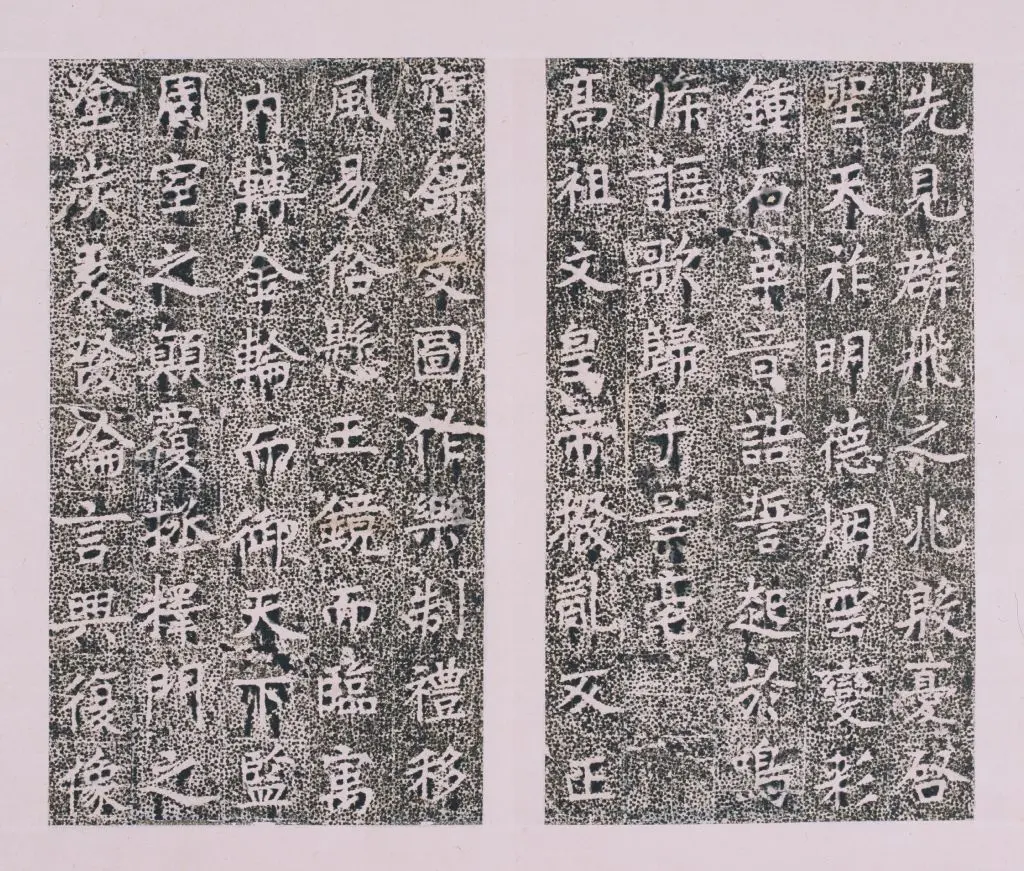 先見群飛之兆殷憂啓
聖天祚明德烟雲變彩
鍾石革音誥誓起於鳴
條謳歌歸乎景亳
高祖文皇帝撥亂反正
膺籙受圖作樂制禮移
風易俗懸玉鏡而臨寓
內轉金輪而御天下監
周室之顛覆拯擇門之
塗炭爰發綸言興復像